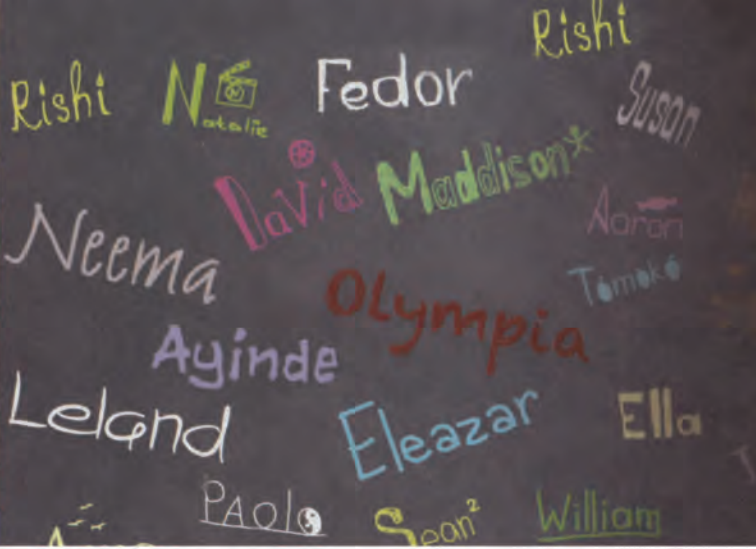 Rishi
Rishi
Natalie
Fedor
Susan
David
Maddison
Aaron
Neema
Tomoko
Olympia
Ayinde
Leland
Eleazar
Ella
Paolo
Sean²
William